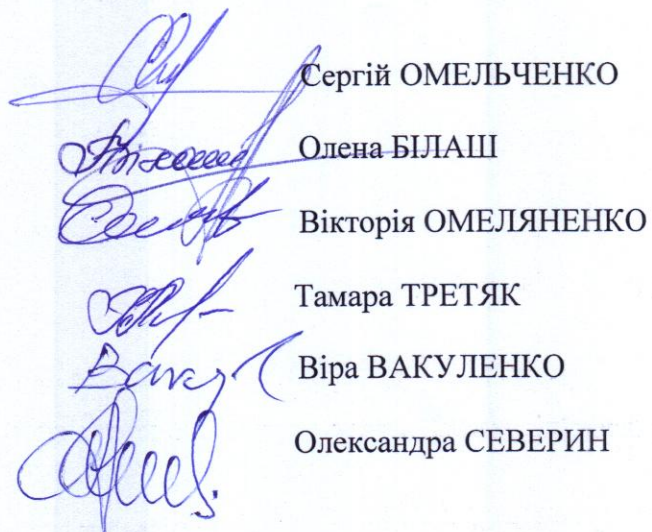 Сергій ОМЕЛЬЧЕНКО
Олена БІЛАШ
Вікторія ОМЕЛЯНЕНКО
Тамара ТРЕТЯК
Віра ВАКУЛЕНКО
Олександра СЕВЕРИН